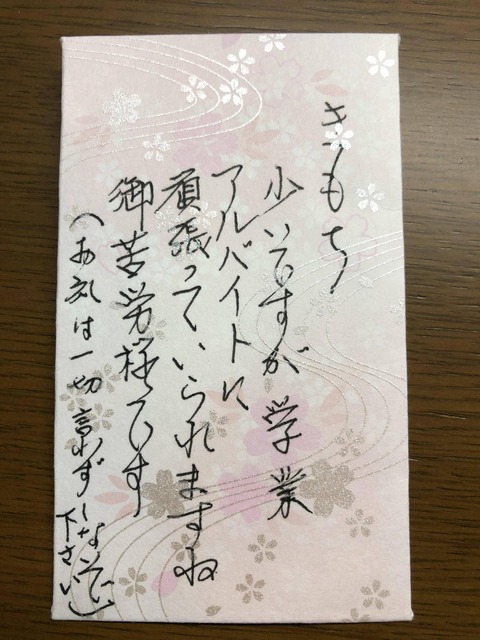 きもち
少いですが学業
アルバイトに
頑張っていられますね
御苦労様です
(お礼は一切言わずしないで
下さい)